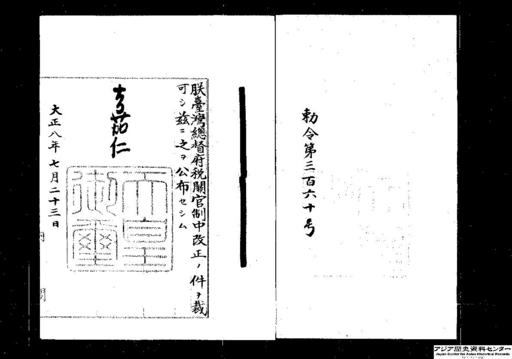 勅令第三百六十号
朕臺灣總督府税關官制中改正ノ件ヲ裁
可シ玆ニ之ヲ公布セシム
嘉仁
天皇
御璽
大正八年七月二十三日
アジア歴史資料センター
Japan Center for Asian Historical Records